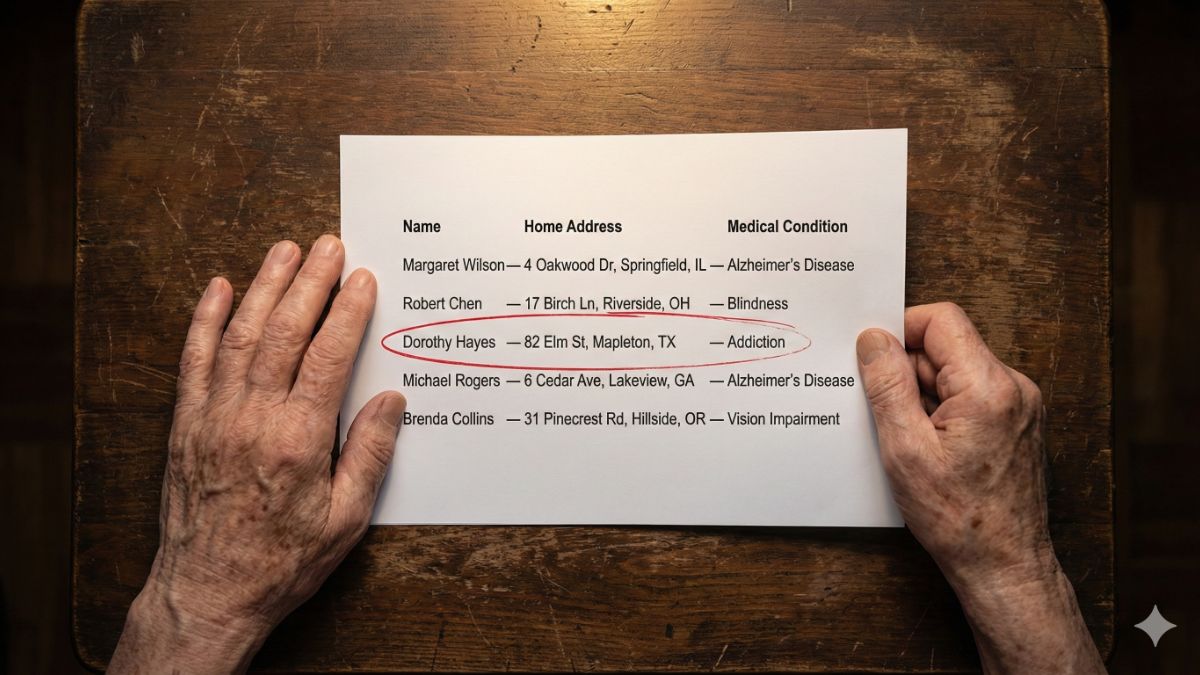 Name Home Address Medical Condition
Margaret Wilson — 4 Oakwood Dr, Springfield, IL — Alzheimer's Disease
Robert Chen — 17 Birch Ln, Riverside, OH — Blindness
Dorothy Hayes — 82 Elm St, Mapleton, TX — Addiction
Michael Rogers — 6 Cedar Ave, Lakeview, GA — Alzheimer's Disease
Brenda Collins — 31 Pinecrest Rd, Hillside, OR — Vision Impairment